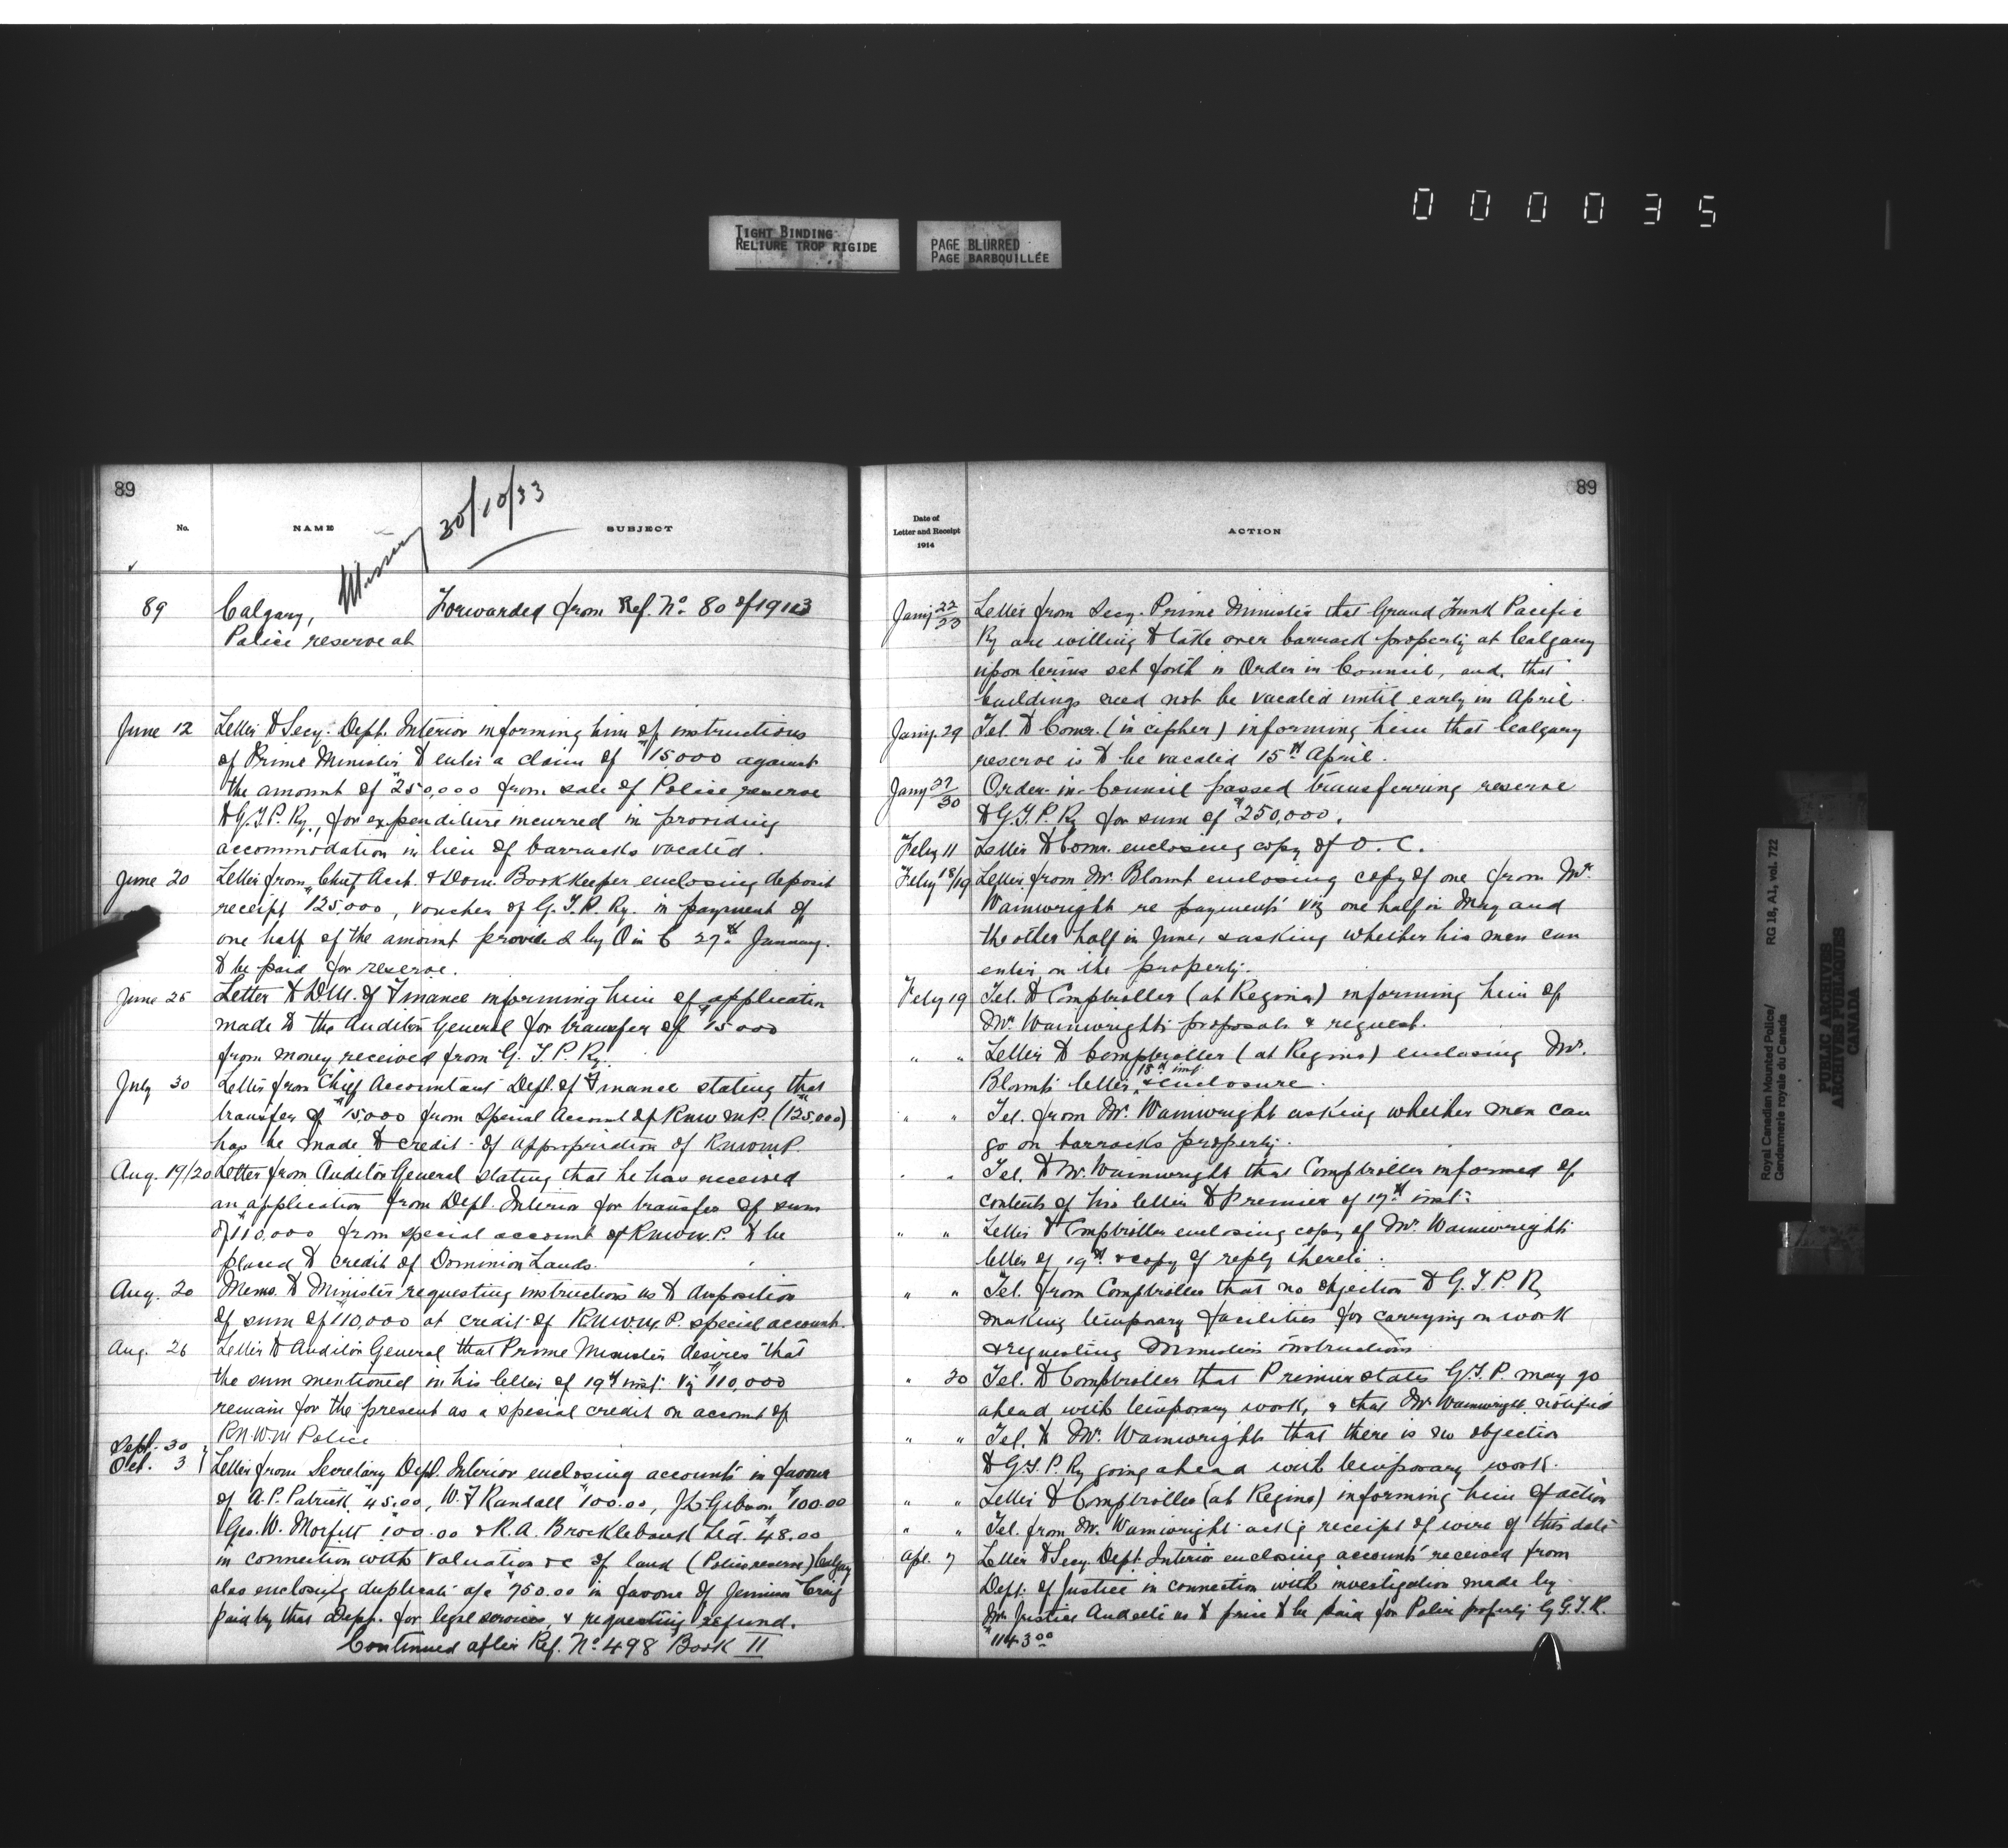 0 0 0 0 3 5
TIGHT BINDING
RELIURE TROP RIGIDE
PAGE BLURRED
PAGE BARBOUILLÉE
89
No.
NAME
SUBJECT
Missing 30/10/33
89
Calgary,
Police reserve at
Forwarded from Ref. No. 80 of 1913
June 12 Letter to Secy. Dept. Interior informing him of instructions
of Prime Minister to enter a claim of $15,000 against
the amount of $250,000 from sale of Police reserve
to G.T.P. Ry., for expenditure incurred in providing
accommodation in lieu of barracks vacated.
June 20 Letter from Chief Acct. & Dom. Bookkeeper enclosing deposit
receipt $125,000, voucher of G.T.P. Ry. in payment of
one half of the amount provided by O in C 27th January.
to be paid for reserve.
June 25 Letter to D.M. of Finance informing him of application
made to the Auditor General for transfer of $15000
from money received from G.T.P. Ry.
July 30 Letter from Chief Accountant Dept. of Finance stating that
transfer of $15,000 from Special Account of R.N.W.M.P. ($125,000)
has be made to credit of appropriation of RNWMP.
Aug. 19/20 Letter from Auditor General stating that he has received
an application from Dept. Interior for transfer of sum
of $110,000 from special account of R.N.W.M.P. to be
placed to credit of Dominion Lands.
Aug. 20 Memo. to Minister requesting instructions as to disposition
of sum of $110,000 at credit of R.N.W.M.P. special account.
Aug. 26 Letter to Auditor General that Prime Minister desires that
the sum mentioned in his letter of 19th inst. viz $110,000
remain for the present as a special credit on account of
R.N.W.M Police
Sept. 30
Oct. 3 } Letter from Secretary Dept. Interior enclosing accounts in favour
of A.P. Patrick $45.00, W.T Randall $100.00, J.L. Gibson $100.00
Geo. W. Morfitt $100.00 & R.A. Brocklebank Ltd. $48.00
in connection with valuation &c of land (Police reserve) Calgary
also enclosing duplicate a/c $750.00 in favour of Jennison Craig
paid by that Dept. for legal services, & requesting refund.
Continued after Ref. No. 498 Book II
89
Date of
Letter and Receipt
1914
ACTION
Jany 22/23 Letter from Secy. Prime Minister that Grand Trunk Pacific
Ry are willing to take over barrack property at Calgary
upon terms set forth in Order in Council, and, that
buildings need not be vacated until early in April.
Jany. 29 Tel. to Comr. (in cipher) informing him that Calgary
reserve is to be vacated 15th April.
Jany 27/30 Order-in-Council passed transferring reserve
to G.T.P. Ry for sum of $250,000.
Feby 11 Letter to Comr. enclosing copy of O.C.
Feby 18/19 Letter from Mr Blount enclosing copy of one from Mr.
Wainwright re payments viz one half in May and
the other half in June, & asking whether his men can
enter on the property.
Feby 19 Tel. to Comptroller (at Regina) informing him of
Mr. Wainwright's proposals & request.
" " Letter to Comptroller (at Regina) enclosing Mr.
Blount's letter 18th inst & enclosure.
" " Tel. from Mr. Wainwright asking whether men can
go on barracks property.
" " Tel. to Mr. Wainwright that Comptroller informed of
contents of his letter to Premier of 17th inst.
" " Letter to Comptroller enclosing copy of Mr. Wainwright's
letter of 19th & copy of reply thereto.
" " Tel. from Comptroller that no objection to G.T.P. Ry
making temporary facilities for carrying on work
& requesting Minister's instructions
" 20 Tel. to Comptroller that Premier states G.T.P. may go
ahead with temporary work, & that Mr Wainwright notified
" " Tel. to Mr. Wainwright that there is no objection
to G.T.P. Ry going ahead with temporary work.
" " Letter to Comptroller (at Regina) informing him of action
" " Tel. from Mr. Wainwright ackg receipt of wire of this date
Apl. 7 Letter to Secy. Dept. Interior enclosing accounts received from
Dept. of Justice in connection with investigation made by
Mr. Justice Audette as to price to be paid for Police property by G.T.R.
$1143.00
Royal Canadian Mounted Police/
Gendarmerie royale du Canada
RG 18, A1, vol. 722
PUBLIC ARCHIVES
ARCHIVES PUBLIQUES
CANADA